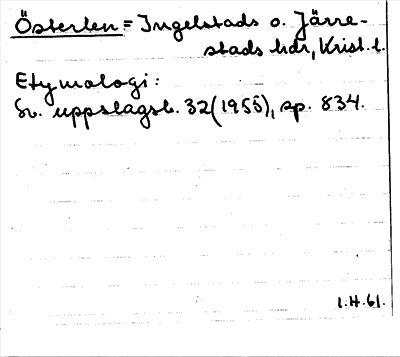 Österlen = Ingelstads o. Järre-
stads hdr, Krist. l.
Etymologi:
Sv. uppslagsb. 32 (1955), sp. 834.
1.4.61.